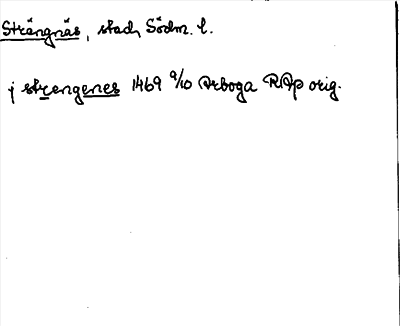 Strängnäs, stad, Södm. l.
j strengenes 1469 9/10 Arboga RAp orig.